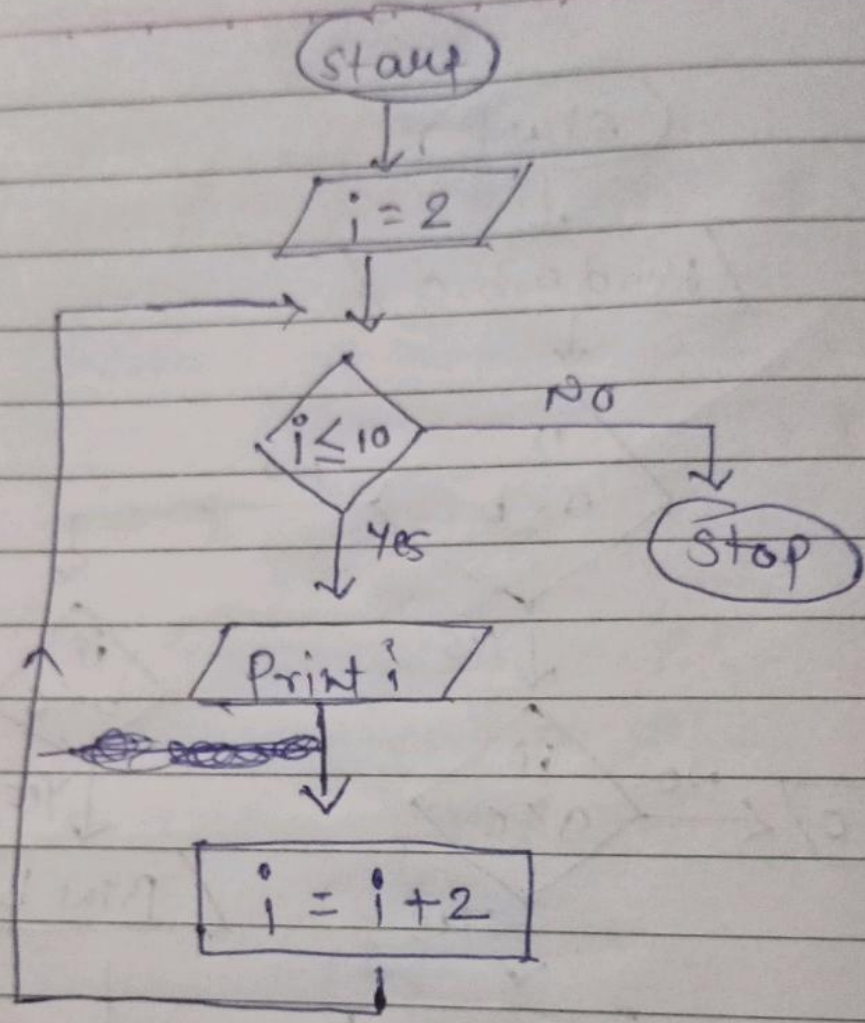 Start
i = 2
i ≤ 10
No
Yes
Stop
Print i
i = i + 2